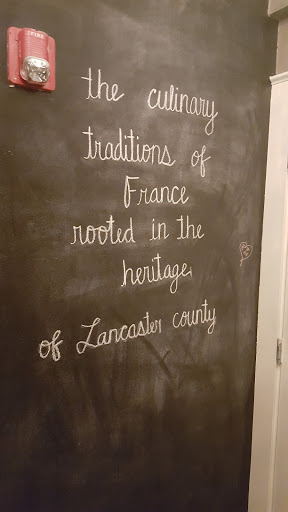 FIRE
the culinary
traditions of
France
rooted in the
heritage
of Lancaster county